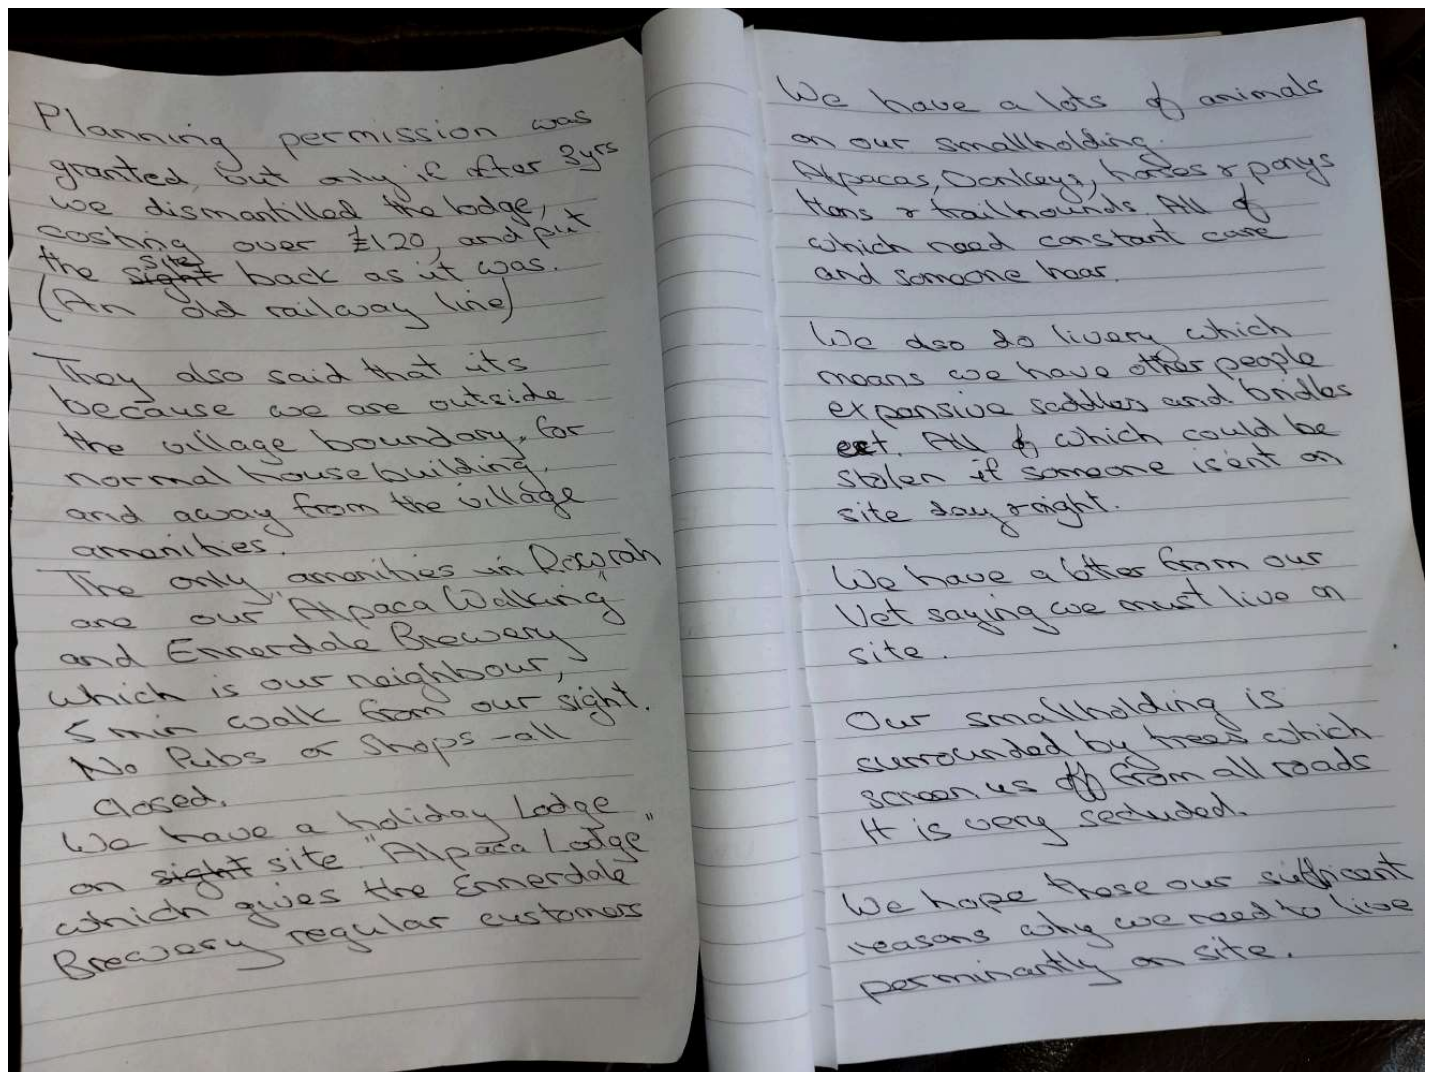 Planning permission was
granted, but only if after 3yrs
we dismantilled the lodge,
costing over £120, and put
the sight site back as it was.
(An old railway line)
They also said that its
because we are outside
the village boundary, for
normal housebuilding,
and away from the village
amenities.
The only amenities in Rowrah
are our "Alpaca Walking"
and Ennerdale Brewery
which is our neighbour,
5 min walk from our sight.
No Pubs or Shops - all
closed.
We have a holiday Lodge
on sight site "Alpaca Lodge"
which gives the Ennerdale
Brewery regular customers
We have a lots of animals
on our smallholding.
Alpacas, Donkeys, horses & ponys
Hens & trailhounds. All of
which need constant care
and someone hear.
We also do livery which
means we have other people
expensive saddles and bridles
ect. All of which could be
stolen if someone isent on
site day & night.
We have a letter from our
Vet saying we must live on
site.
Our smallholding is
surrounded by trees which
screen us off from all roads
It is very secluded.
We hope these our sufficent
reasons why we need to live
perminantly on site.